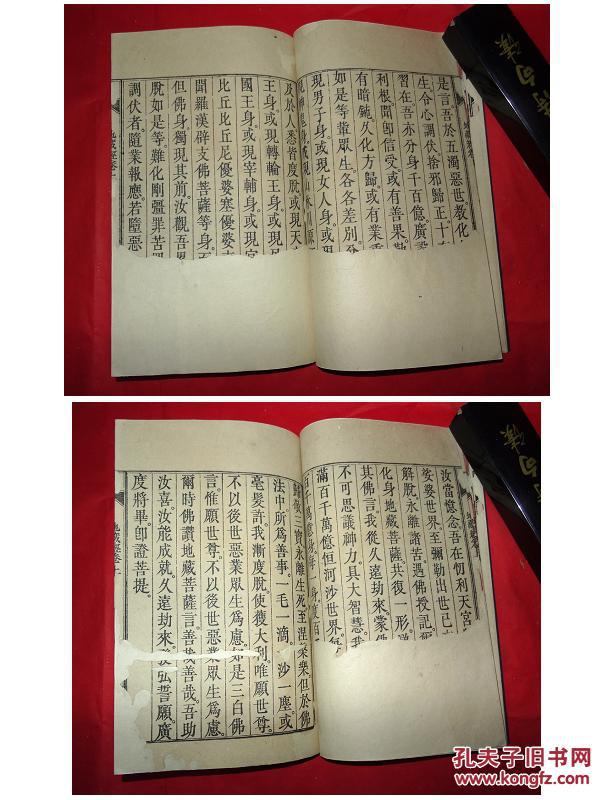 是言吾於五濁惡世教化
生令心調伏捨邪歸正十
習在吾亦分身千百億廣設
利根聞卽信受或有善果勤
有暗鈍久化方歸或有業重
如是等輩眾生各各差別分
現男子身或現女人身或現
及於人悉皆度脫或現天
王身或現轉輪王身或現
國王身或現宰輔身或現官
比丘比丘尼優婆塞優婆
聞羅漢辟支佛菩薩等身
但佛身獨現其前汝觀吾
脫如是等難化剛彊罪苦
調伏者隨業報應若墮惡
地藏經卷上
汝當憶念吾在忉利天宮
娑婆世界至彌勒出世已
解脫永離諸苦遇佛授記
化身地藏菩薩共復一形
其佛言我從久遠劫來蒙
不可思議神力具大智慧我
滿百千萬億恒河沙世界
歸敬三寶永離生死至涅槃樂但於佛
法中所爲善事一毛一滴一沙一塵或
毫髮許我漸度脫使獲大利唯願世尊
不以後世惡業眾生爲慮如是三白佛
言唯願世尊不以後世惡業眾生爲慮
爾時佛讚地藏菩薩言善哉善哉吾助
汝喜汝能成就久遠劫來發弘誓願廣
度將畢卽證菩提
地藏經卷上
孔夫子旧书网
www.kongfz.com